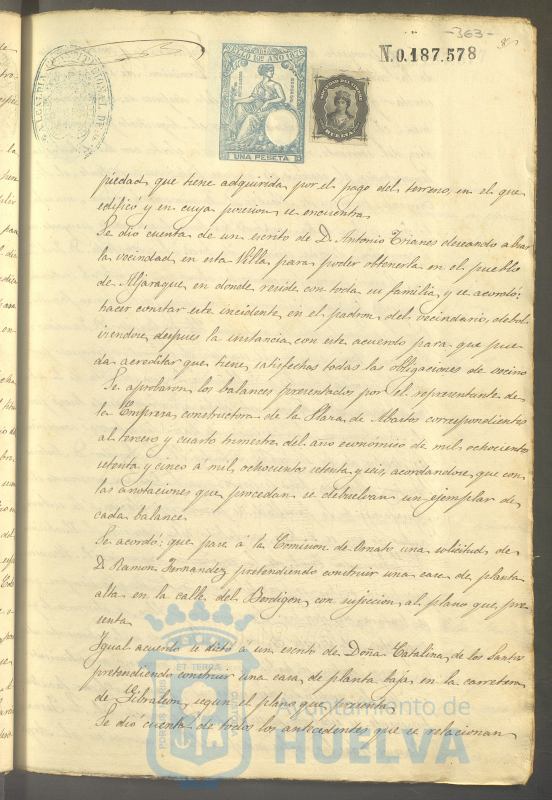 -363-
SELLO 10º AÑO 1876
N.0.187,578
HUELVA
UNA PESETA
piedad que tiene adquirida por el pago del terreno, en el que
edificó y en cuya posesion se encuentra
Se dió cuenta de un escrito de D. Antonio Trianes deseando alzar
la vecindad en esta Villa para poder obtenerla en el pueblo
de Aljaraque, en donde reside con toda su familia, y se acordó:
hacer constar este incidente en el padron del vecindario, debol
viendose despues la instancia con este acuerdo para que pue
da acreditar que tiene satisfechas todas las obligaciones de vecino
Se aprobaron los balances presentados por el representante de
la Empresa constructora de la Plaza de Abastos correspondientes
al tercero y cuarto trimestre del año economico de mil ochocientos
setenta y cinco á mil ochocientos setenta y seis, acordandose, que con
las anotaciones que procedan se debuelvan un ejemplar de
cada balance
Se acordó: que pase á la Comision de Ornato una solicitud de
D. Ramon Fernandez pretendiendo construir una casa de planta
alta en la calle del Bordigon, con sujecion al plano que pre
senta
Igual acuerdo se dictó á un escrito de Doña Catalina de los Santos
pretendiendo construir una casa de planta baja en la carretera
de Gibraleon, segun el plano que presenta
Se dió cuenta de todos los antecedentes que se relacionan
Ayuntamiento de
HUELVA